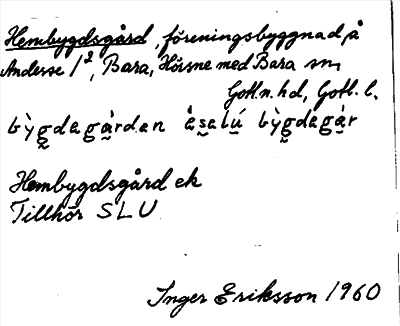 Hembygdsgård, föreningsbyggnad, å
Anderse 1², Bara, Hörsne med Bara sn,
Gotl.n.hd, Gotl. l.
bỳg̰dagá̱rdan ása̱lú̱ bỳg̰dagá̱r
Hembygdsgård ek
Tillhör SLU
Inger Eriksson 1960